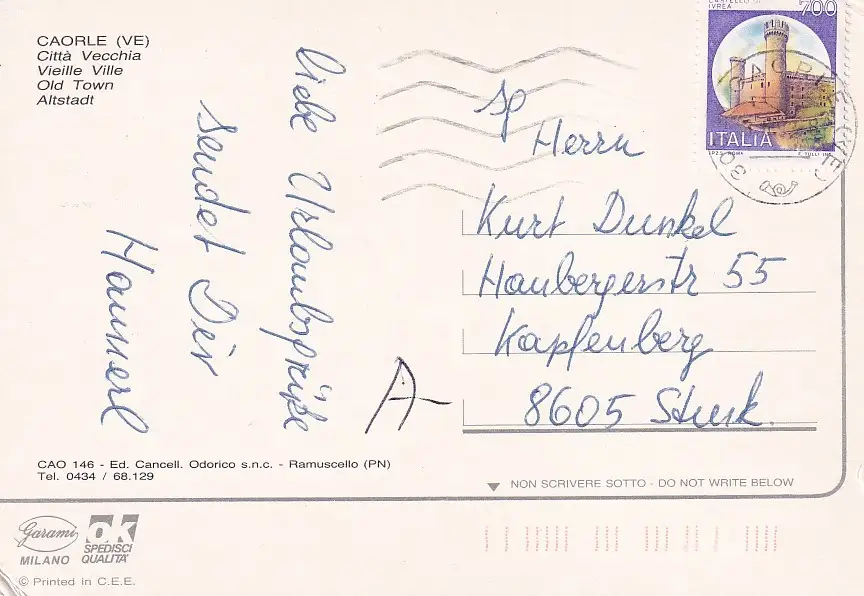 CAORLE (VE)
Città Vecchia
Vieille Ville
Old Town
Altstadt
Liebe Urlaubsgrüße
sendet Dir
Hannerl
CASTELLO DI
IVREA
700
ITALIA
I.P.Z.S. ROMA
E. TULLI INC.
CAORLE (VE)
30
Herrn
Kurt Dunkel
Haubergerstr 55
Kapfenberg
8605 Stmk.
A-
CAO 146 - Ed. Cancell. Odorico s.n.c. - Ramuscello (PN)
Tel. 0434 / 68.129
NON SCRIVERE SOTTO - DO NOT WRITE BELOW
Garami
MILANO
OK
SPEDISCI
QUALITA'
© Printed in C.E.E.